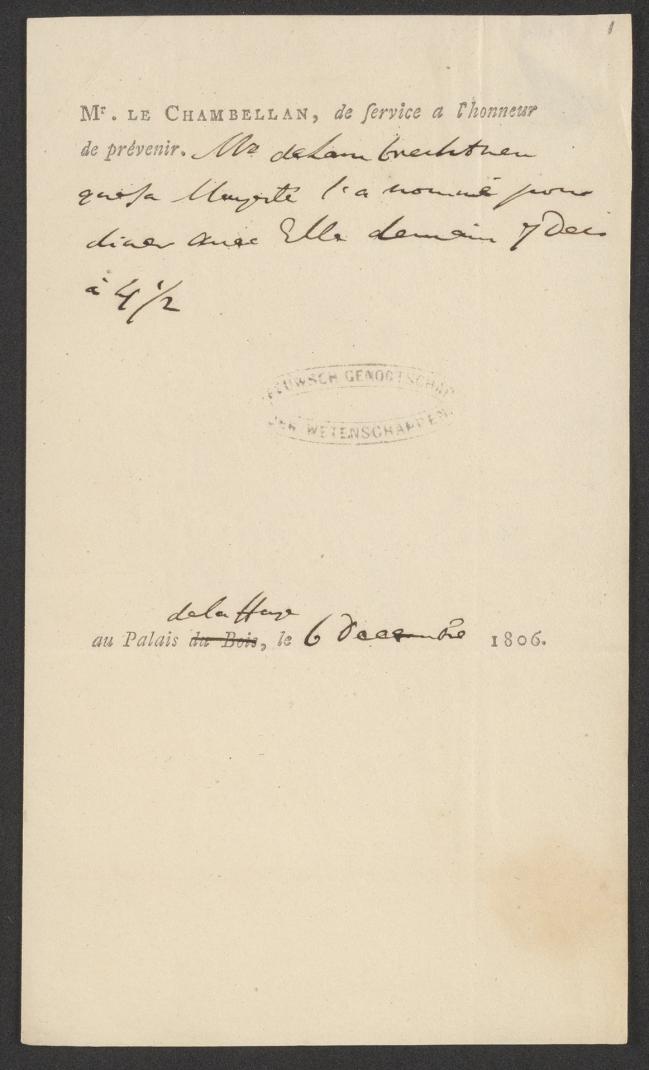 1
Mr. LE CHAMBELLAN, de service a l'honneur
de prévenir. Mr de Lambrechtsen
que sa Majesté l'a nommé pour
diner avec Elle demain 7 Dec
à 4 1/2
ZEEUWSCH GENOOTSCHAP
DER WETENSCHAPPEN
de la Haye
au Palais du Bois, le 6 Decembre 1806.